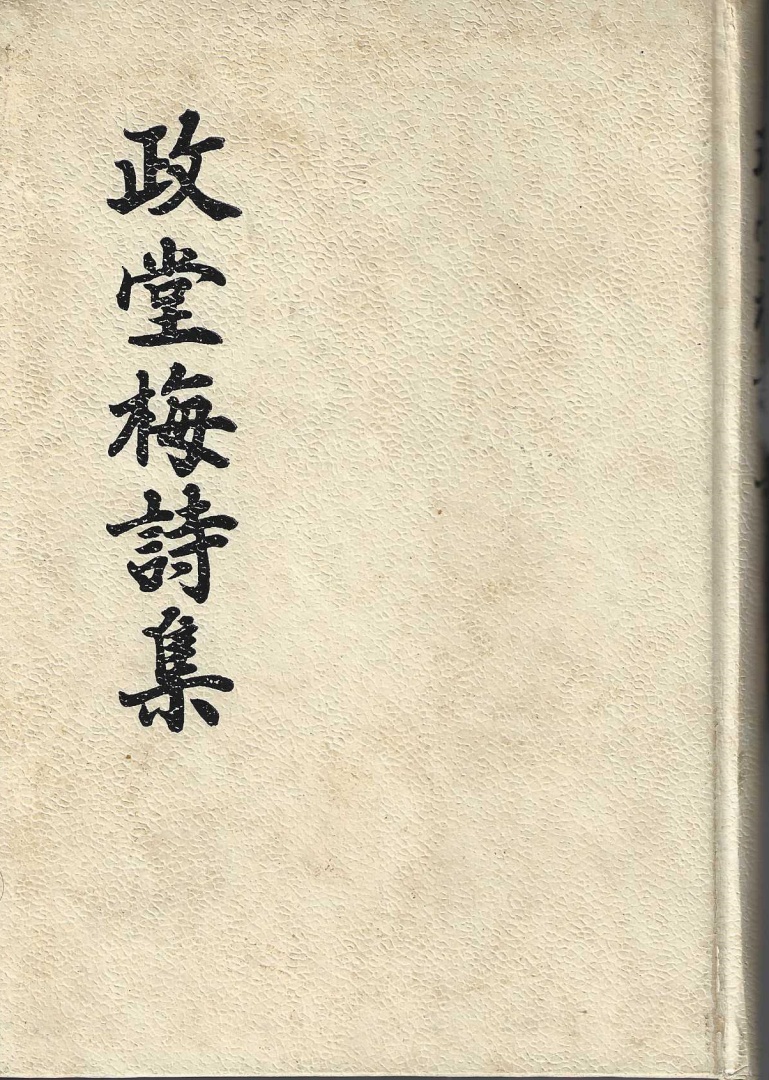 政堂梅詩集